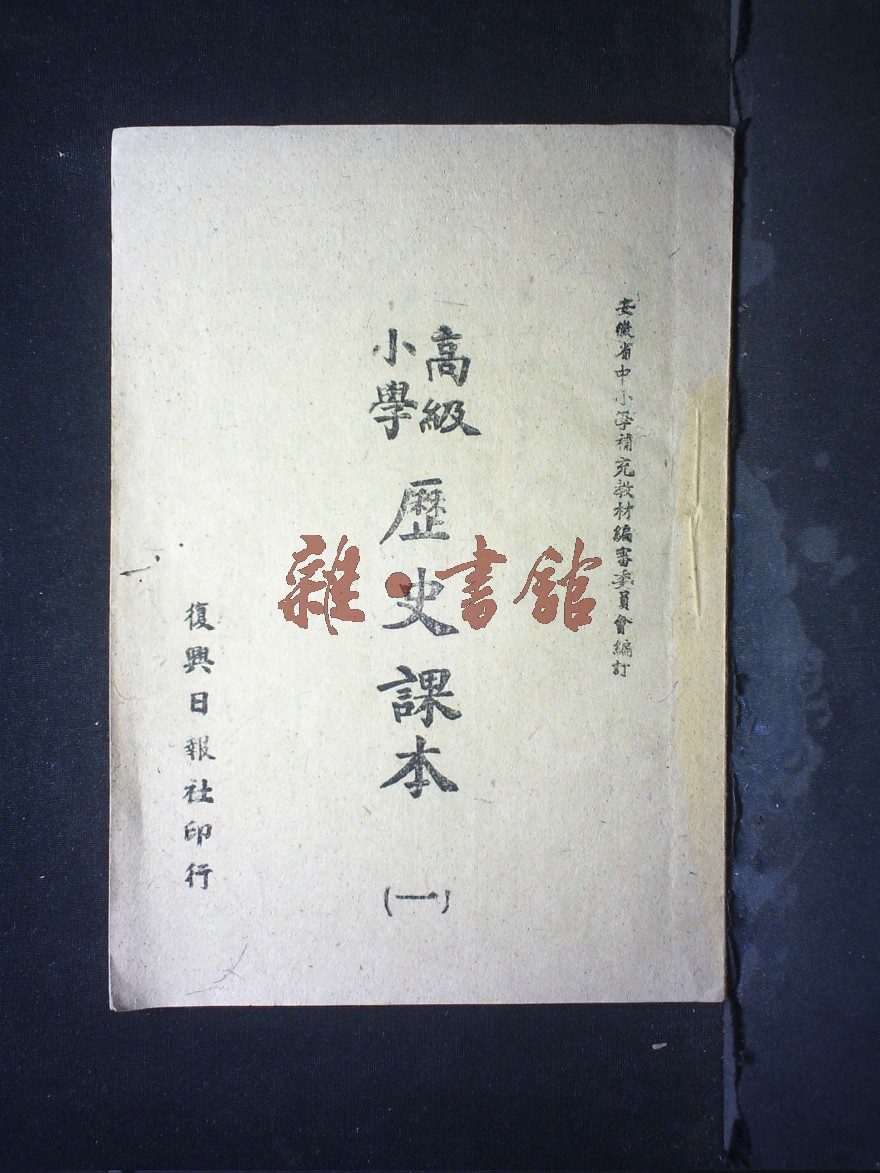 安徽省中小學補充教材編審委員會編訂
高級
小學
歷史課本
(一)
復興日報社印行
雜·書館